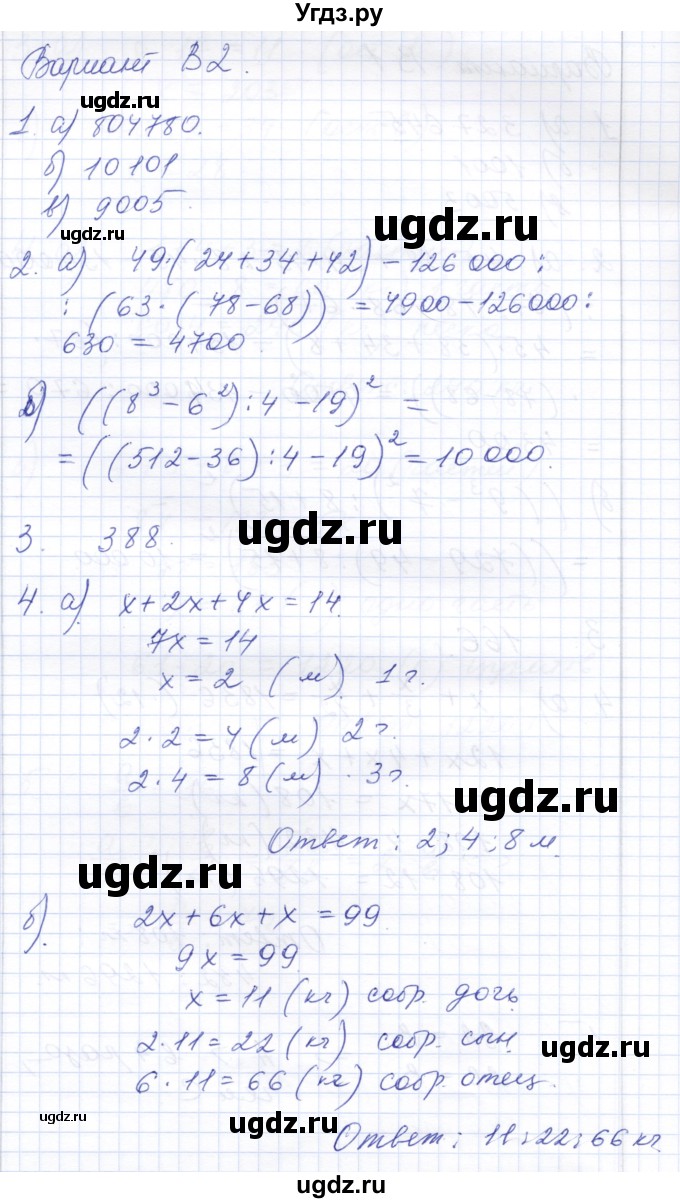 Угдз.ру
Вариант В2.
ugdz.ru
1. а) 804780.
б) 10101
в) 9005.
ugdz.ru
ugdz.ru
2. а) 49·(24+34+42)-126000:
:(63·(78-68)) = 4900-126000:
630 = 4700.
б) ((8³-6²):4-19)² =
=((512-36):4-19)²=10000.
ugdz.ru
3. 388.
4. а) x+2x+4x=14.
ugdz.ru
7x=14
x=2 (м). 1 г.
2·2=4(м) 2 г.
2·4=8(м). 3 г.
ugdz.ru
Ответ: 2; 4; 8 м.
ugdz.ru
б). 2x+6x+x=99
9x=99.
x=11(кг) собр. дочь.
2·11=22(кг) собр. сын.
ugdz.ru
6·11=66(кг) собр. отец.
ugdz.ru
Ответ: 11; 22; 66 кг.
ugdz.ru
ugdz.ru
ugdz.ru